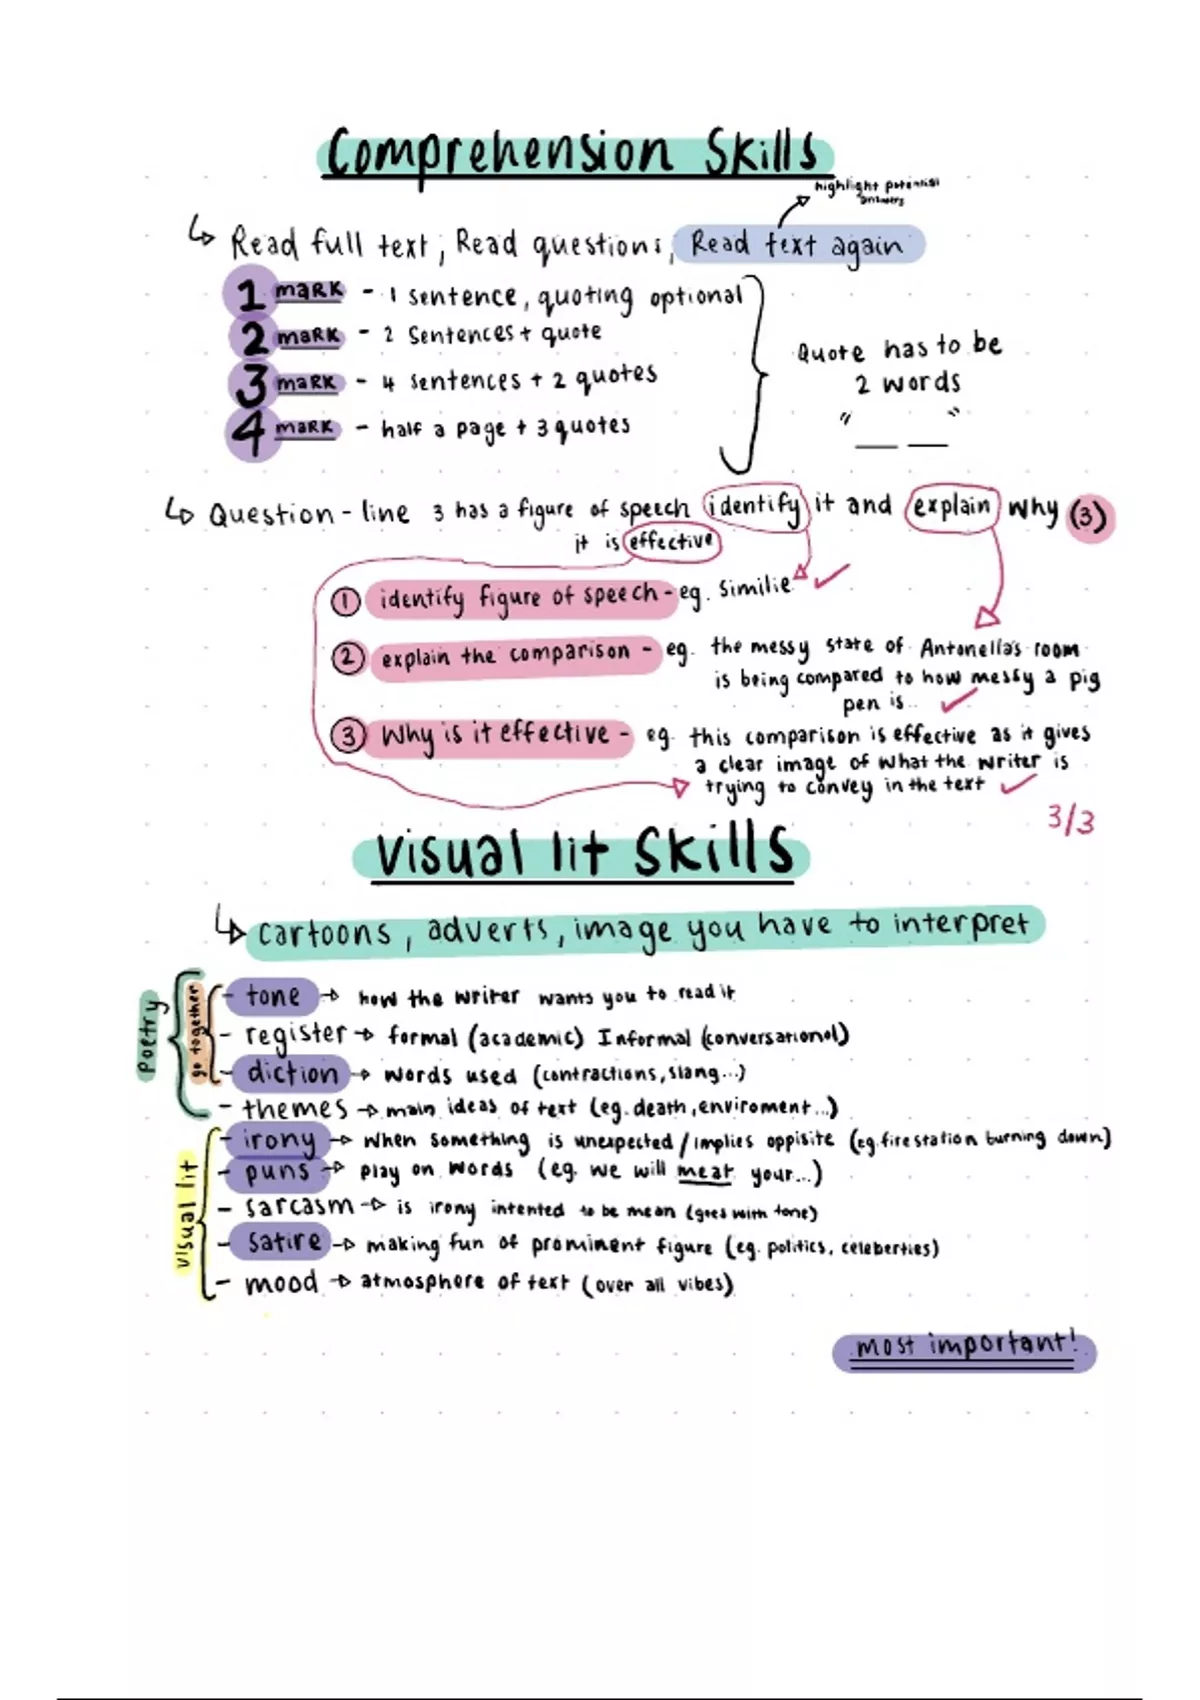 Comprehension Skills
highlight potential
answers
↳ Read full text, Read questions, Read text again
1 mark - 1 sentence, quoting optional
2 mark - 2 Sentences + quote
3 mark - 4 sentences + 2 quotes
4 mark - half a page + 3 quotes
Quote has to be
2 words
" __ __ "
↳ Question - line 3 has a figure of speech identify it and explain why (3)
it is effective
① identify figure of speech - eg. Similie ✓
② explain the comparison - eg. the messy state of Antonella's room
is being compared to how messy a pig
pen is. ✓
③ Why is it effective - eg. this comparison is effective as it gives
a clear image of what the writer is
trying to convey in the text ✓
3/3
Visual lit Skills
↳ cartoons, adverts, image you have to interpret
poetry
go together
- tone → how the writer wants you to read it
- register → formal (academic) Informal (conversational)
- diction → words used (contractions, slang...)
- themes → main ideas of text (eg. death, enviroment...)
visual lit
- irony → when something is unexpected / implies oppisite (eg. fire station burning down)
- puns → play on words (eg. we will meat your...)
- sarcasm → is irony intented to be mean (goes with tone)
- satire → making fun of prominent figure (eg. politics, celeberties)
- mood → atmosphere of text (over all vibes)
most important!